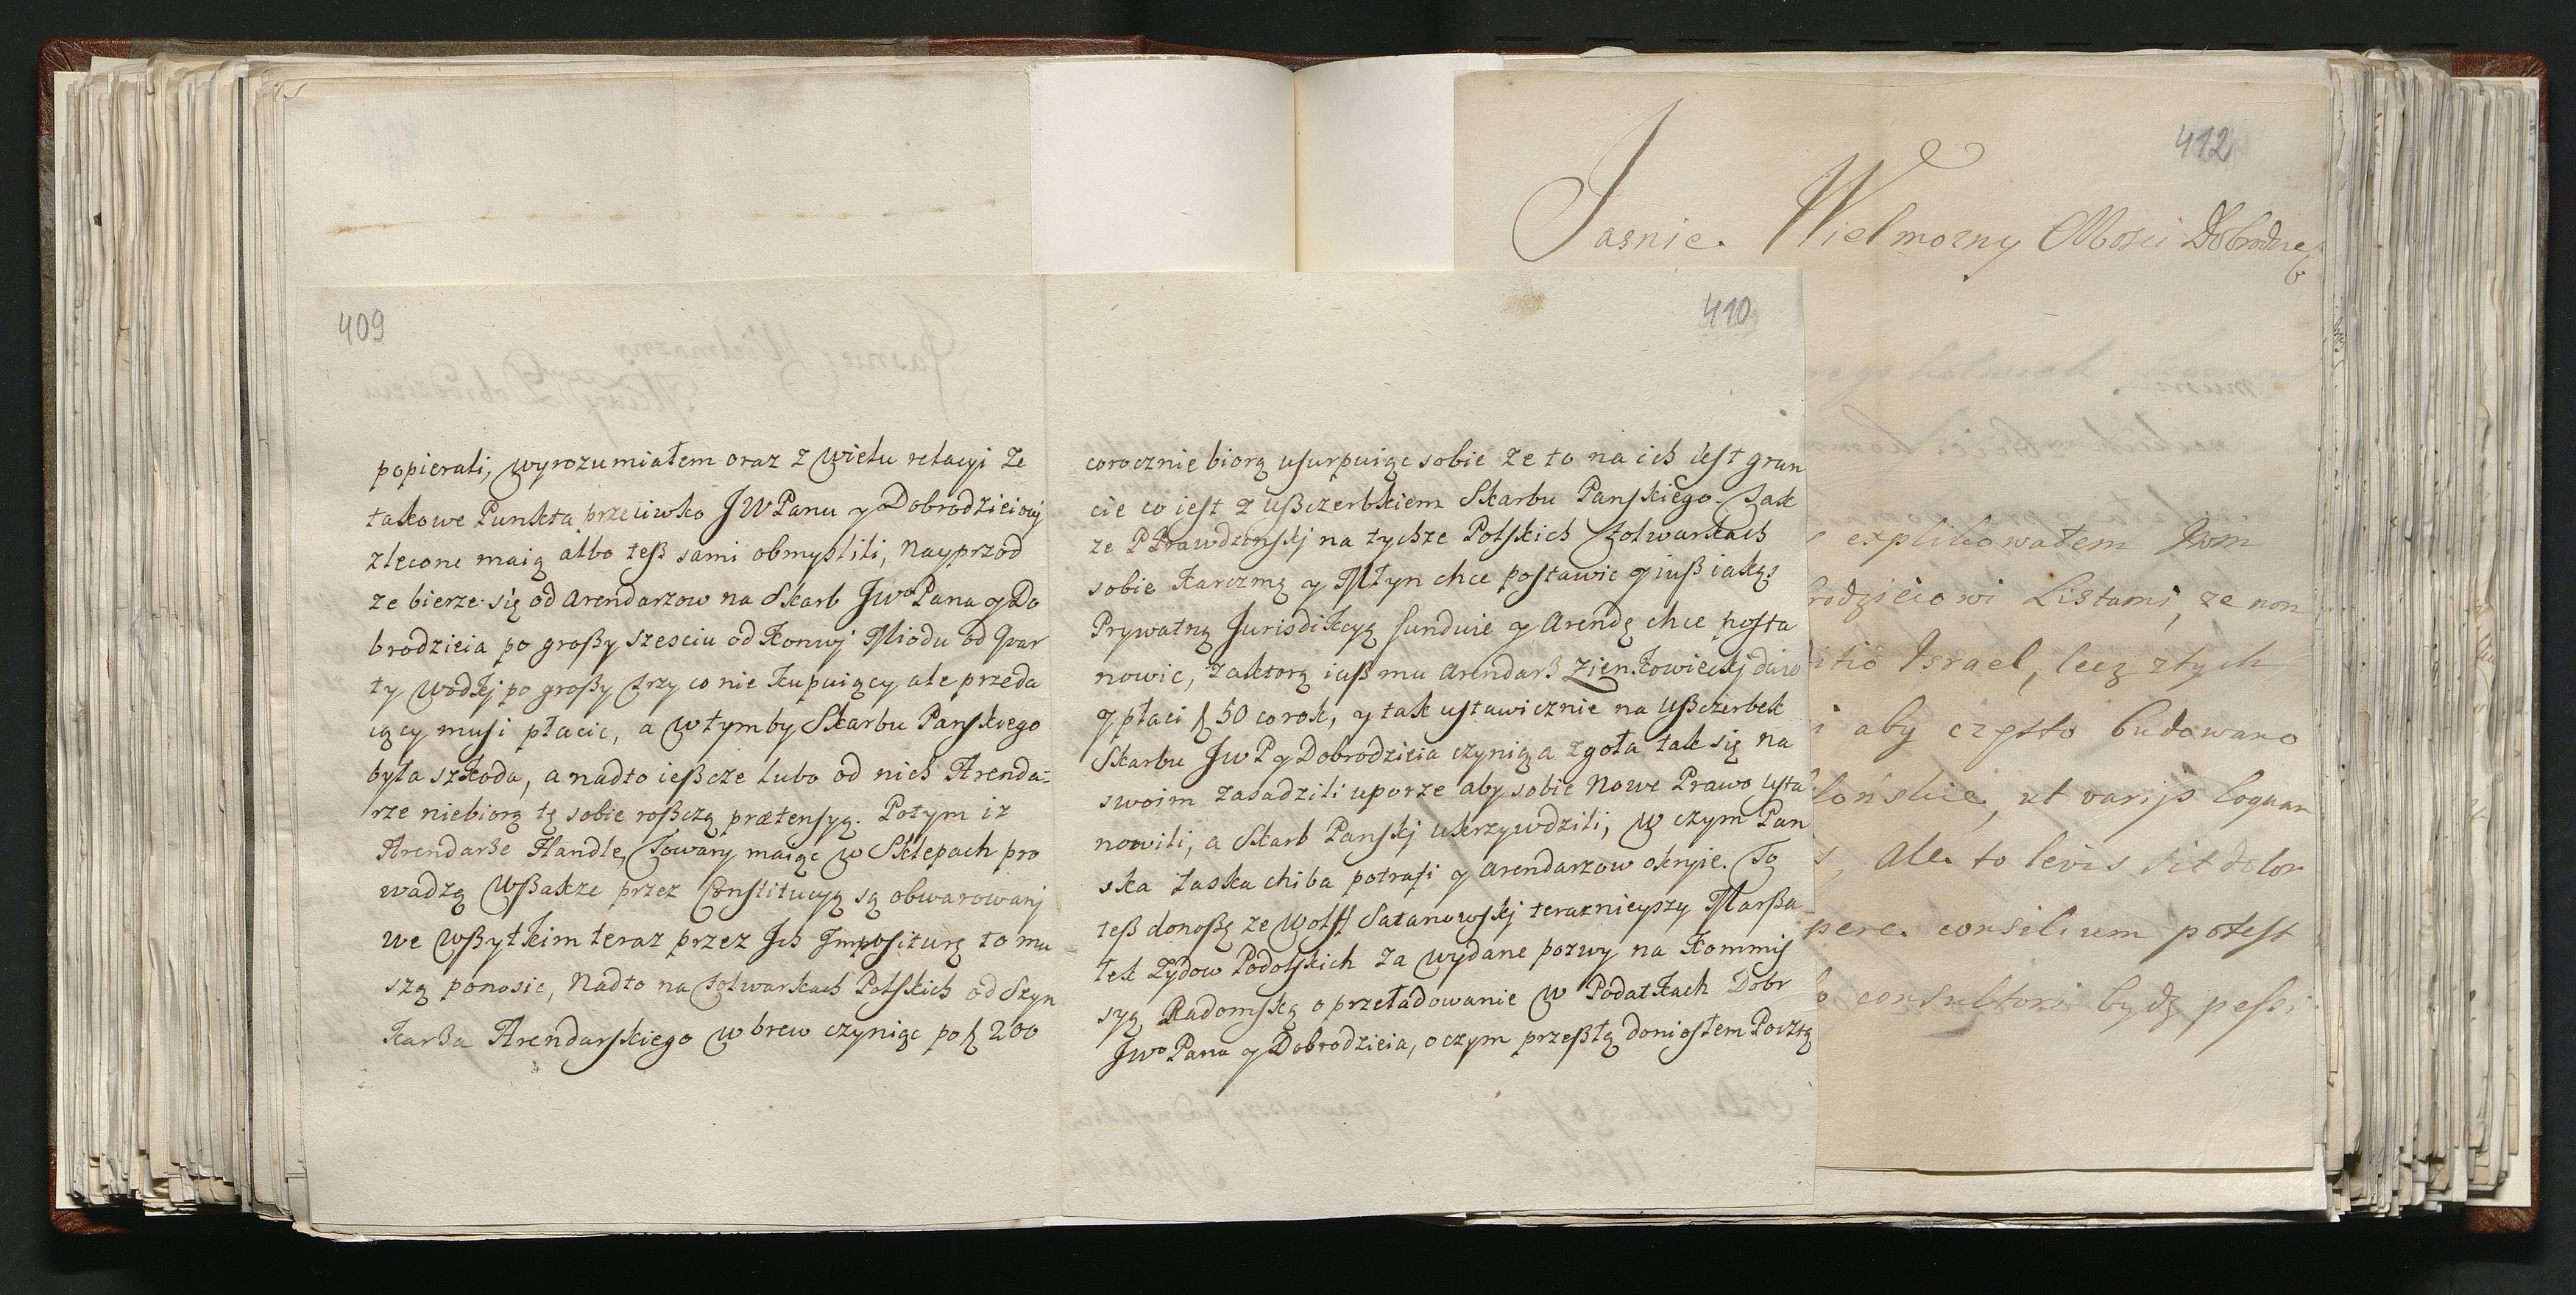 409
popierali, wyrozumiałem oraz z wielu relacyi że
takowe Punkta przeciwko JWPanu y Dobrodzieiowj
zlecone maią albo teß sami obmyslili, Nayprzod
ze bierze się od Arendarzow na Skarb Jwo Pana y Do
brodzieia po großy szesciu od Konwj Miodu od Qvar
ty wodkj po großy trzy co nie kupuiący ale przeda
iący musi płacic, a w tym by Skarbu Panskiego
była szkoda, a nadto ießcze lubo od nich Arenda=
rze niebiorą tę sobie roßczą prætensyą. Potym iz
Arendarße Handle, Towary maiąc w Sklepach pro
wadzą wßakze przez Constitucyą są obwarowanj
we wßytkim teraz przez Ich Impositurę to mu
szą ponosic, Nadto na folwarkach Polskich od Szyn
karßa Arendarskiego wbrew czyniąc po f 200
410
corocznie biorą usurpuiąc sobie ze to na ich iest grun
cie co iest z ußczerbkiem Skarbu Panskiego. Jak
ze P Prawdzinskj na tychze Polskich folwarkach
sobie karczmę y Młyn chce postawic y iuß iakąs
Prywatną Jurisdikcyą funduie y Arendę chce posta
nowic, za ktorą iuß mu Arendarß Zienkowieckj daie
y płaci f 50 co rok, y tak ustawicznie na ußczerbek
Skarbu Jw P y Dobrodzieia czynią a zgoła tak się na
swoim zasadzili uporze aby sobie Nowe Prawo usta
nowili, a Skarb Panskj ukrzywdzili, w czym Pan
ska Łaska chiba potrafi y Arendarzow okryie. To
teß donoßę ze Wolff Satanowskj teraznieyszy Marßa
łek Zydow Podolskich za wydane pozwy na Kommis
syą Radomską o przeładowanie w Podatkach Dobr
Jwo Pana y Dobrodzieia, o czym przeßłą doniosłem Pocztą
412
Jasnie Wielmozny Mosci Dobrodzie
explikowałem Jwm
rodzieiowi Listami, ze non
itio Israel, lecz złych
i aby często budowano
lońskie, ut varijs loquar
Ale to levis sit dolor
pere. consilium potest
consultori bydz pessi